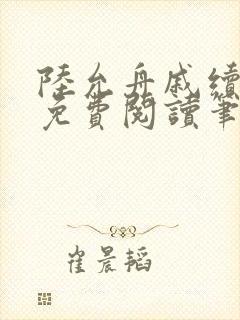 陸允舟戚續
免費閱讀筆
崔晨韜